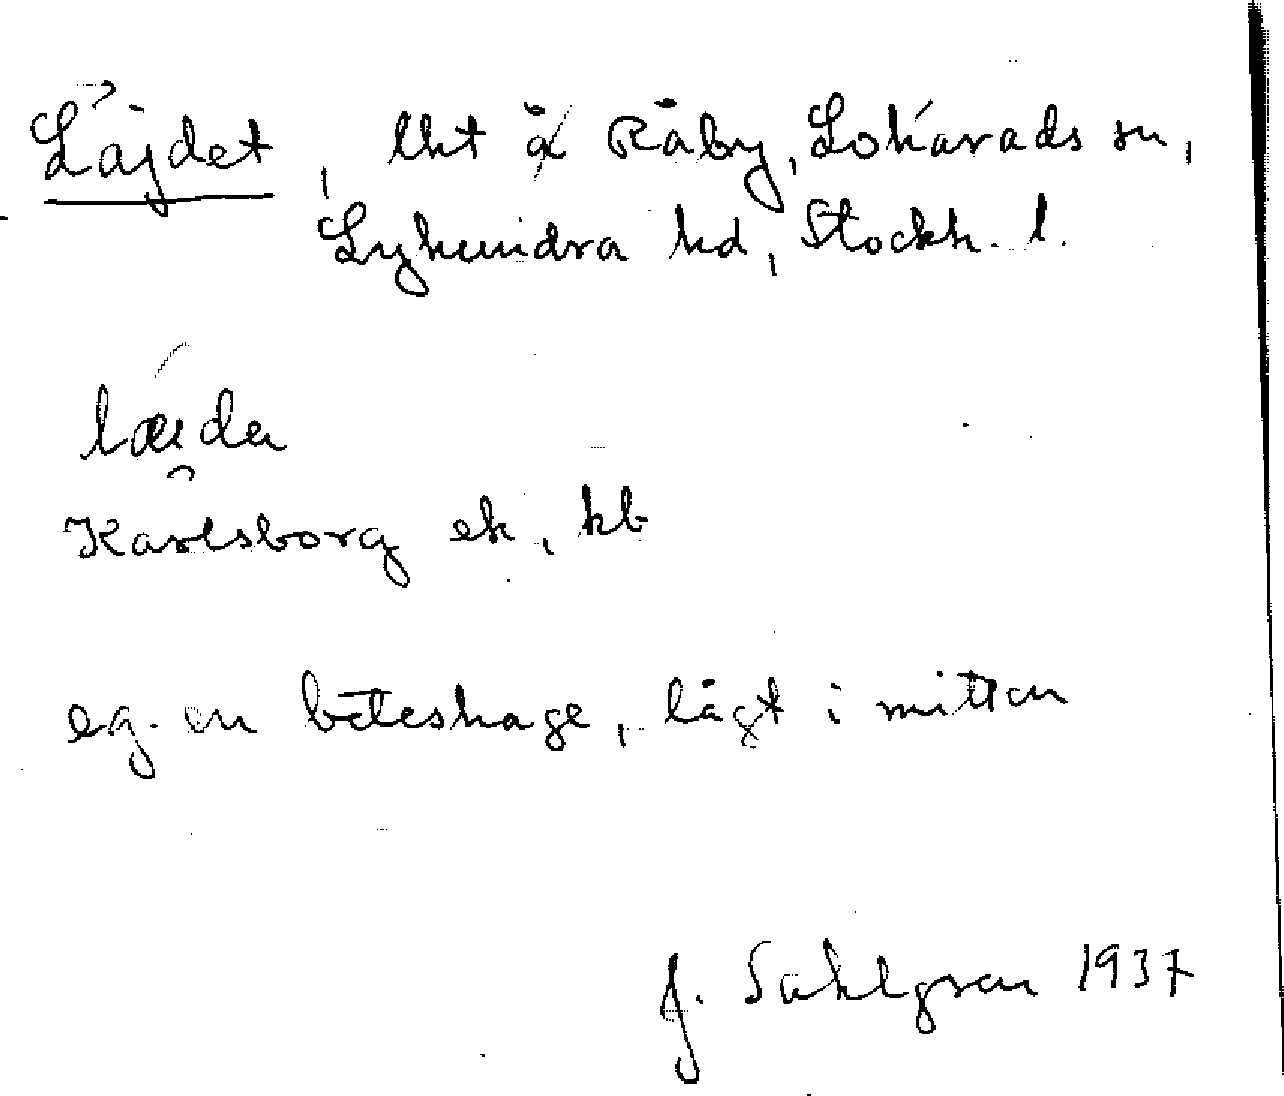 Läjdet, lht å Råby, Lohärads sn,
Lyhundra hd, Stockh. l.
læi̯da
Karlsborg ek, kb
eg. en beteshage, lågt i mitten
J. Sahlgren 1937